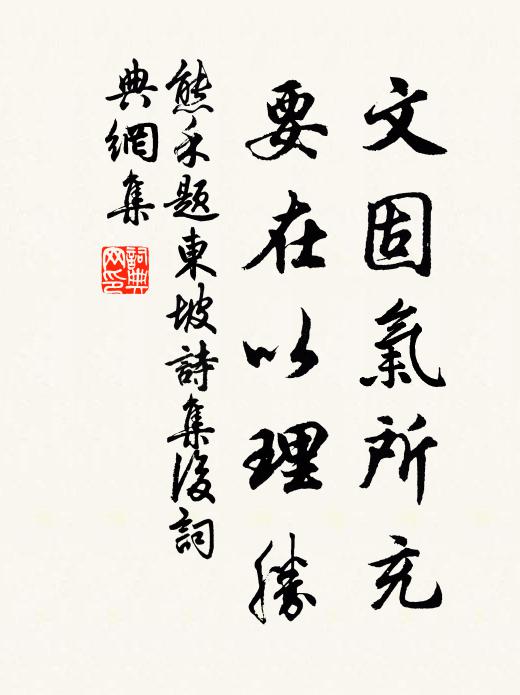 文固氣所充
要在以理勝
熊禾題東坡詩集後詞
典網集
詞典
网印